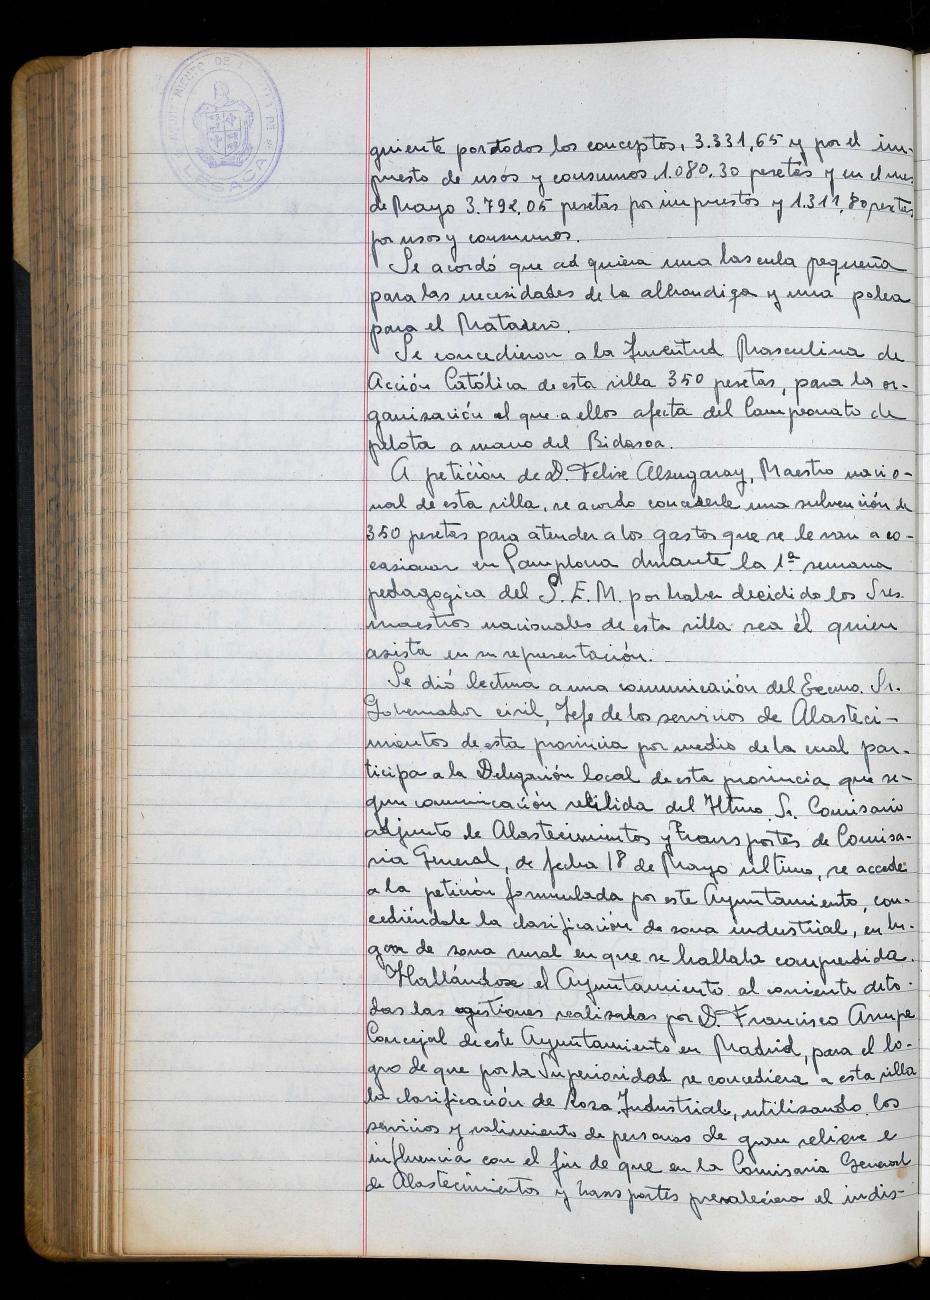 AYUNTAMIENTO DE
LESACA
guiente por todos los conceptos, 3.331,65 y por el im-
puesto de usos y consumos 1.080.30 pesetas y en el mes
de Mayo 3.792,05 pesetas por impuestos y 1.311,80 pesetas
por usos y consumos.
Se acordó que adquiera una bascula pequeña
para las necesidades de la alhondiga y una polea
para el Matadero.
Se concedieron a la Juventud Masculina de
Acción Católica de esta villa 350 pesetas, para la or-
ganización el que a ellos afecta del Campeonato de
pelota a mano del Bidasoa.
A petición de D. Felise Alzugaray, Maestro nacio-
nal de esta villa, se acordo concederle una subvención de
350 pesetas para atender a los gastos que se le van a co-
casionar en Pamplona durante la 1ª semana
pedagogica del S.E.M. por haber decidido los Sres.
maestros nacionales de esta villa sea él quien
asista en su representación.
Se dió lectura a una comunicación del Excmo. Sr.
Gobernador civil, Jefe de los servicios de Abasteci-
mientos de esta provincia por medio de la cual par-
ticipa a la Delegación local de esta provincia que se-
gun comunicación rebibida del Iltmo. Sr. Comisario
adjunto de Abastecimientos y transportes de Comisa-
ria General, de fecha 18 de Mayo ultimo, se accede
a la petición formulada por este Ayuntamiento, con-
cediéndole la clasificación de zona industrial, en lu-
gar de zona rural en que se hallaba comprendida.
Hallándose el Ayuntamiento al corriente de to-
das las gestiones realizadas por D. Francisco Arrupe
Concejal de este Ayuntamiento en Madrid, para el lo-
gro de que por la Superioridad se concediera a esta villa
la clasificación de Zona Industrial, utilizando los
servicios y valimiento de personas de gran relieve e
influencia con el fin de que en la Comisaria General
de Abastecimientos y transportes prevaleciera el indis-